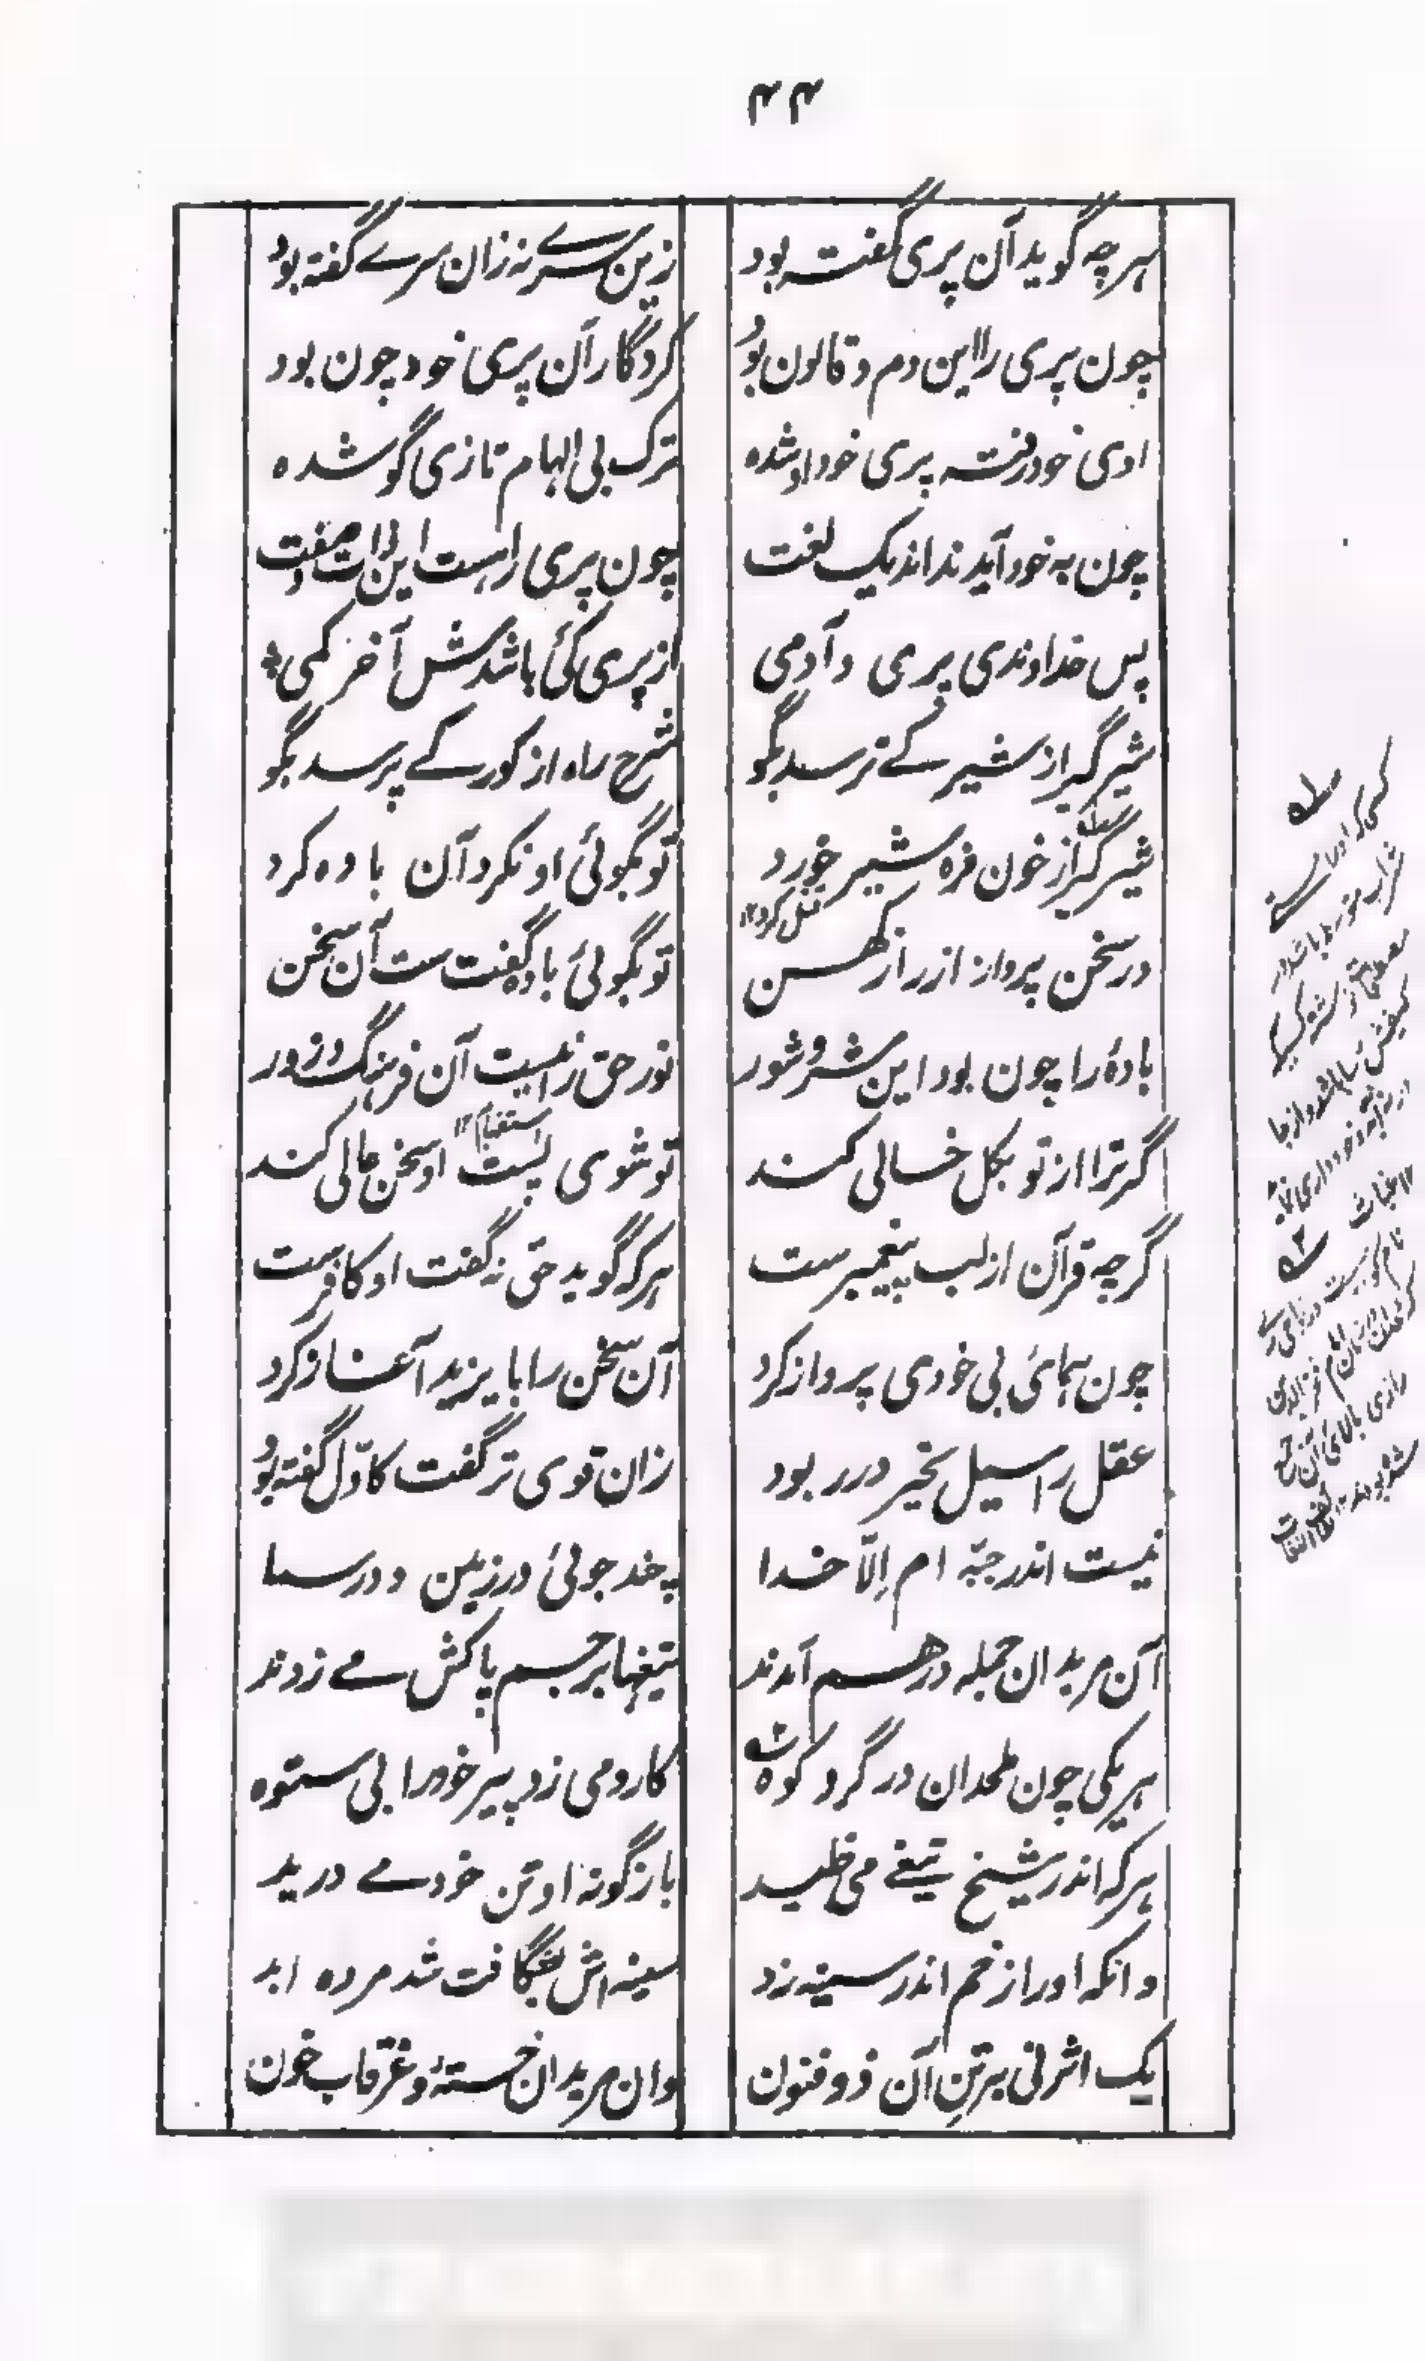 ۴۴
هر چه گوید آن پری گفته بود زین سرے نه زان سرے گفته بود
چون پری را این دم و قانون بود کردگار آن پری خود چون بود
اوی خود رفته پری خود او شده ترک بی الهام تازی گو شده
چون به خود آید نداند یک لغت چون پری راهست این ذات و صفت
پس خداوندی پری و آدمی از پری کئ باشدش آخر کمی
شیر گیر از شیر کے ترسد بگو شرح راه از کور کے پرسد بگو
شیر گیر از خون نره شیر خورد تو بگوئی او نکرد آن باده کرد
در سخن پرواز از راز کهن تو بگوئی باده گفت ست آن سخن
نقل کرد ۱۲
بادهٔ را چون بود این شر و شور نور حق را نیست آن فرهنگ و زور
گر ترا از تو بکل خالی کند تو شوی پست او سخن عالی کند
استفهام ۱۲
گرچه قرآن از لب پیغمبر ست هر که گوید حق نه گفت او کافر ست
چون همائی بی خودی پرواز کرد آن سخن را بایزید آغاز کرد
عقل را سیل تحیر در ربود زان قوی تر گفت کاوّل گفته بود
نیست اندر جبّه ام اِلّا خدا چند جوئی در زمین و در سما
آن مریدان جمله در هم آمدند تیغها بر جسم پاکش مے زدند
هر یکی چون ملحدان در گرد کوه کارد می زد پیر خود را بی ستوه
هر که اندر شیخ تیغے می خلید بازگونه او تن خود مے درید
وانکه او را زخم اندر سینه زد سینه اش بشگافت شد مرده ابد
یک اثر نی بر تنِ آن ذو فنون وان مریدان خستهٔ و غرقاب خون
رازی بالائی آن